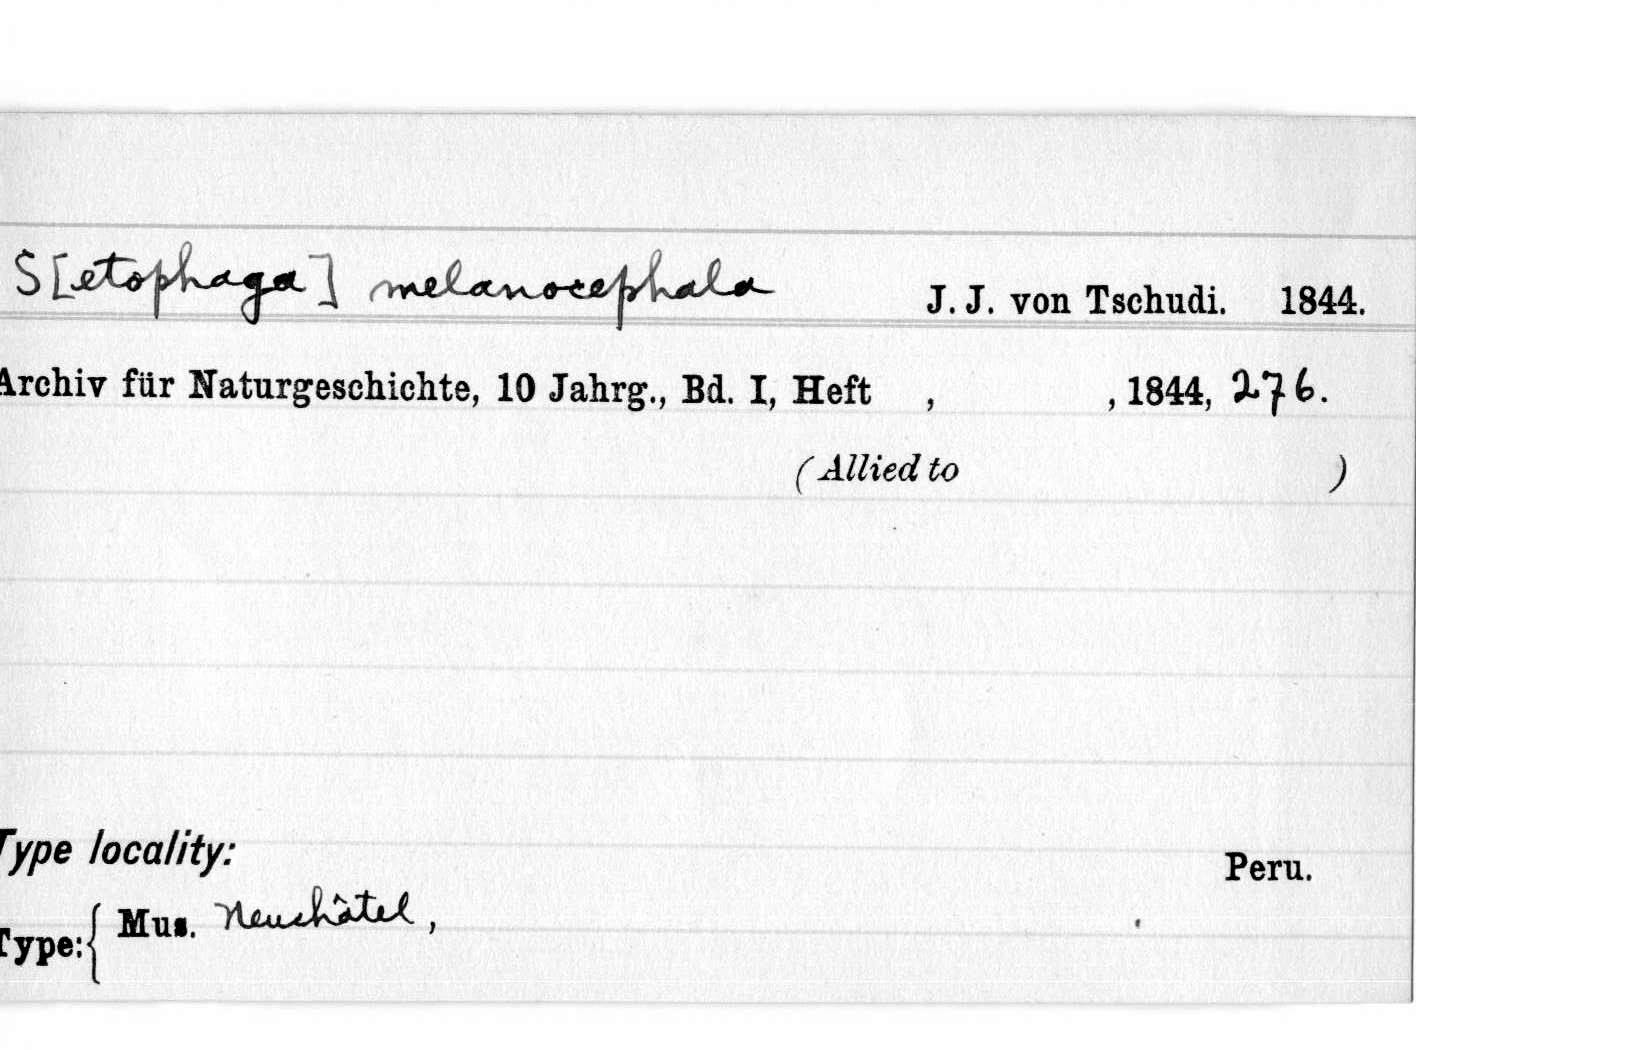 S[etophaga] melanocephala J. J. von Tschudi. 1844.
Archiv für Naturgeschichte, 10 Jahrg., Bd. I, Heft , , 1844, 276.
(Allied to )
Type locality: Peru.
Type: { Mus. Neuchâtel,